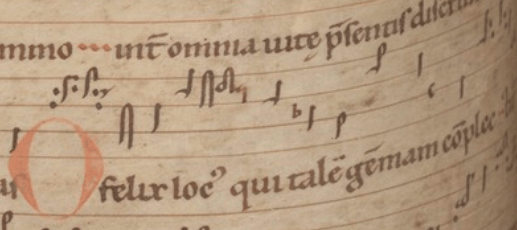 mmo int̄ omnia uite p̄sentis
O felix loc᷒ qui talē gēmam cōplec